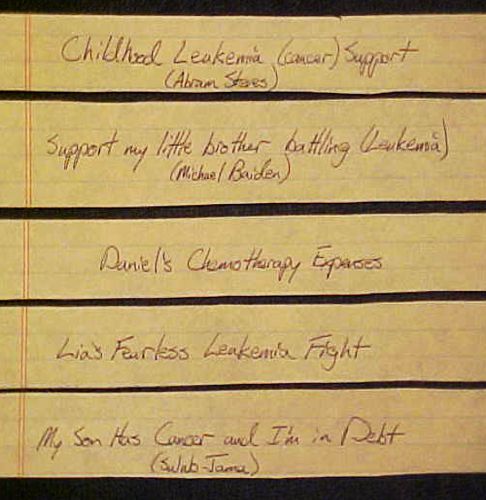 Childhood Leukemia (cancer) Support
(Abram Steves)
Support my little brother battling (Leukemia)
(Michael Baiden)
Daniel's Chemotherapy Expenses
Lia's Fearless Leukemia Fight
My Son Has Cancer and I'm in Debt
(Sulub-Jama)